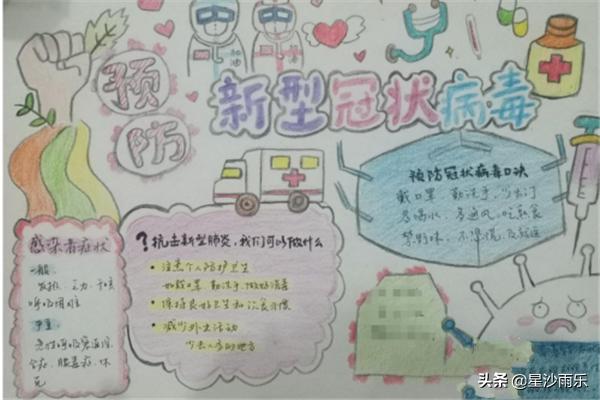 加油
加油
预防
新型冠状病毒
预防冠状病毒口诀
戴口罩 勤洗手 少出门
多喝水 多通风 吃熟食
禁野味 不恐慌 及就医
感染者症状
一般:
发热、乏力、干咳
呼吸困难
严重:
急性呼吸窘迫综
合症、脓毒症、休
克
?抗击新型肺炎,我们可以做什么
注意个人防护卫生
如戴口罩、勤洗手、做好消毒
保持良好卫生和饮食习惯
减少外出活动
少去人多的地方
头条 @星沙雨乐